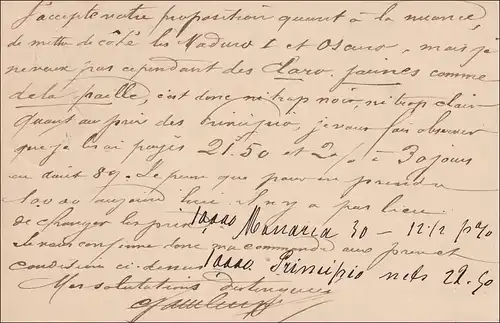 J'accepte votre proposition quant à la nuance,
de mettre de côté les Maduro & et Oscuro, mais je
ne veux pas cependant des Claro jaunes comme
de la paille, c'est donc ni trop noir, ni trop clair
Quant au prix des Principio, je vous fais observer
que je les ai payés 21.50 et 2% à 30 jours
en août 89. Je pense que pour en prendre
10.000 aujourd'hui il n'y a pas lieu
de changer les prix 10,000 30 - 12 1/2 p%
Je vous confirme donc ma commande aux prix et
condition ci-dessus 10000 Principio nets 22.50
Mes salutations distinguées